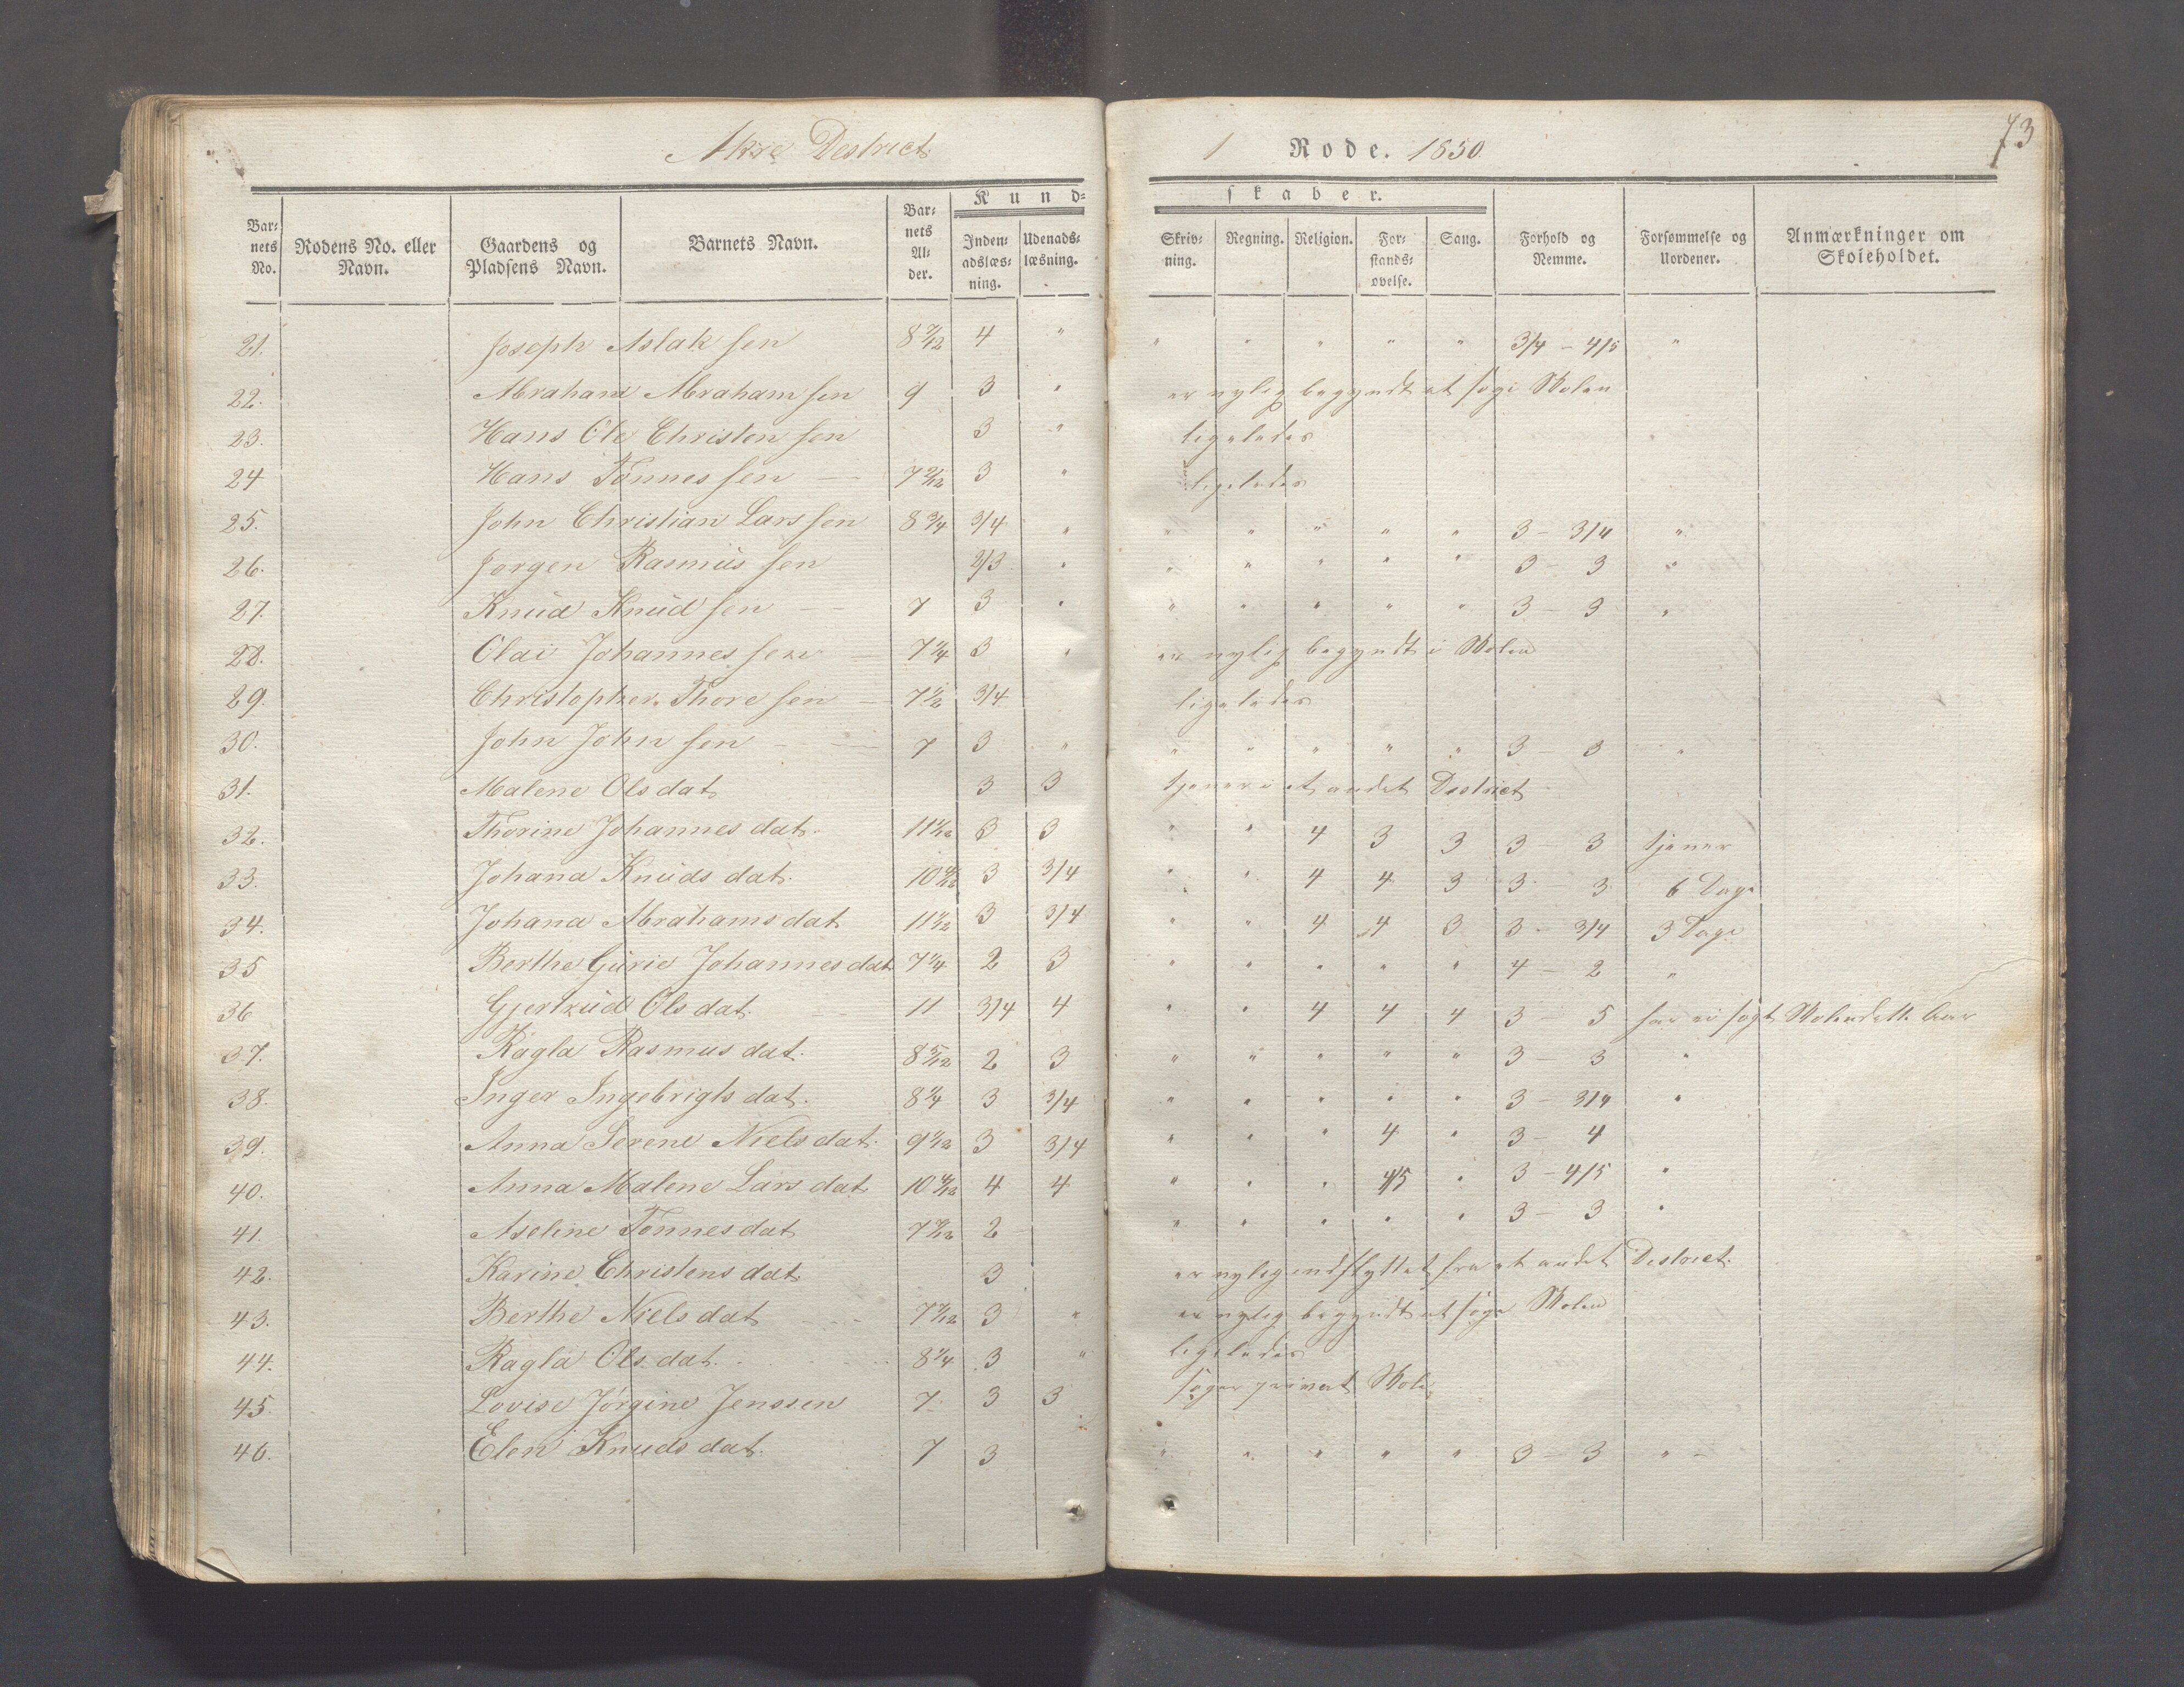 Akre Destrict
1 Rode. 1850
73
Barnets No. | Rodens No. eller Navn. | Gaardens og Pladsens Navn. | Barnets Navn. | Barnets Alder. | Kundskaber. | Indenadslæsning. | Udenadslæsning. | Skrivning. | Regning. | Religion. | Forstandsøvelse. | Sang. | Forhold og Nemme. | Forsømmelse og Uordener. | Anmærkninger om Skoleholdet.
21. Joseph Aslaksen 8 7/12 4 " " " " " " 3/4 - 4/5 "
22. Abraham Abrahamsen 9 3 " er nylig begyndt at søge Skolen
23. Hans Ole Christensen 3 " ligeledes
24 Hans Tönnessen 7 2/12 3 " ligeledes
25. John Christian Larssen 8 3/4 3/4 " " " " " " 3 - 3/4 "
26. Jorgen Rasmüssen 2/3 " " " " " " 3 - 3 "
27. Knüd Knüdsen 7 3 " " " " " " 3 - 3 "
28. Olai Johannessen 7 1/4 3 " er nylig begyndt i Skolen
29. Christopher Thoresen 7 1/2 3/4 ligeledes
30. John Johnsen 7 3 " " " " " " 3 - 3 "
31. Malene Olsdat. 3 3 tjener i et andet Destrict
32. Thorine Johannesdat. 11 1/12 3 3 " " 4 3 3 3 - 3 tjener
33. Johana Knüdsdat. 10 3 3/4 " " 4 4 3 3 - 3 6 Dage
34. Johana Abrahamsdat. 11 1/12 3 3/4 " " 4 4 3 3 - 3/4 3 Dage
35 Berthe Gürie Johannesdat. 7 1/4 2 3 " " " " " 4 - 2 "
36 Gjertrüd Olsdat. 11 3/4 4 " " 4 4 4 3 - 5 har ei søgt Skolen dette Aar
37. Ragla Rasmusdat. 8 5/12 2 3 " " " " " 3 - 3 "
38. Inger Ingebrigtsdat. 8 1/4 3 3/4 " " " " " 3 - 3/4 "
39. Anna Serene Nielsdat. 9 1/12 3 3/4 " " " 4 " 3 - 4
40. Anna Malene Larsdat. 10 4 4 " " " 4/5 " 3 - 4/5 "
41. Aseline Tönnesdat. 7 2 " " " " " 3 - 3 "
42. Karine Christensdat. 3 er nylig indflyttet fra et andet Destrict.
43. Berthe Nielsdat. 7 3 " er nylig begyndt at søge Skolen
44. Ragla Olsdat. 8 1/4 3 " ligeledes
45. Lovise Jørgine Jenssen 7 3 3 søger privat Skole
46. Elen Knudsdat. 7 3 " " " " " 3 - 3 "